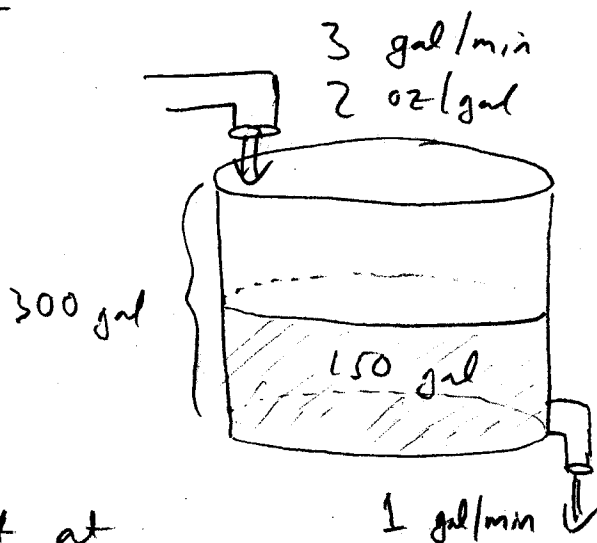 3 gal/min
2 oz/gal
300 gal
150 gal
1 gal/min
at